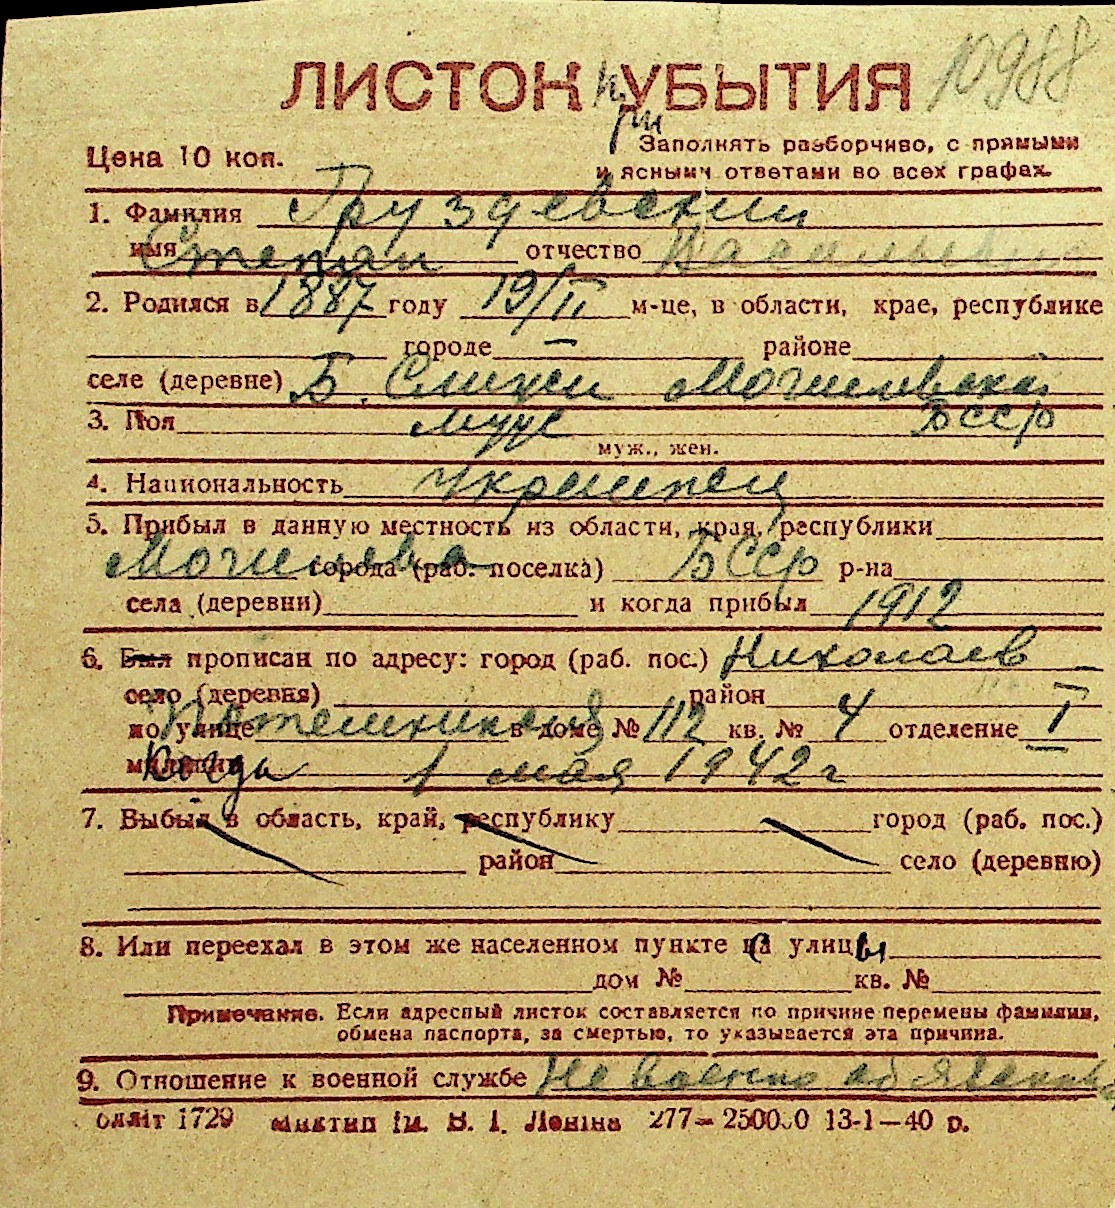 10988
ЛИСТОК УБЫТИЯ
Цена 10 коп.
Заполнять разборчиво, с прямыми
и ясными ответами во всех графах.
1. Фамилия Груздевский
имя Степан отчество Васильев
2. Родился в 1887 году 19/II м-це, в области, крае, республике
городе — районе
селе (деревне) Б. Могилевской
3. Пол муж БССР
муж., жен.
4. Национальность Украинец
5. Прибыл в данную местность из области, края, республики
Могилева города (раб. поселка) БССР р-на
села (деревни) и когда прибыл 1912
6. Был прописан по адресу: город (раб. пос.) Николаев
село (деревня) район
по улице в доме № 112 кв. № 4 отделение I
милиции Когда 1 мая 1942 г
7. Выбыл в область, край, республику город (раб. пос.)
район село (деревню)
8. Или переехал в этом же населенном пункте с улицы
дом № кв. №
Примечание. Если адресный листок составляется по причине перемены фамилии,
обмена паспорта, за смертью, то указывается эта причина.
9. Отношение к военной службе Не военно обязанный
1729 ім. В. І. Леніна 277— 250000 13-1—40 р.